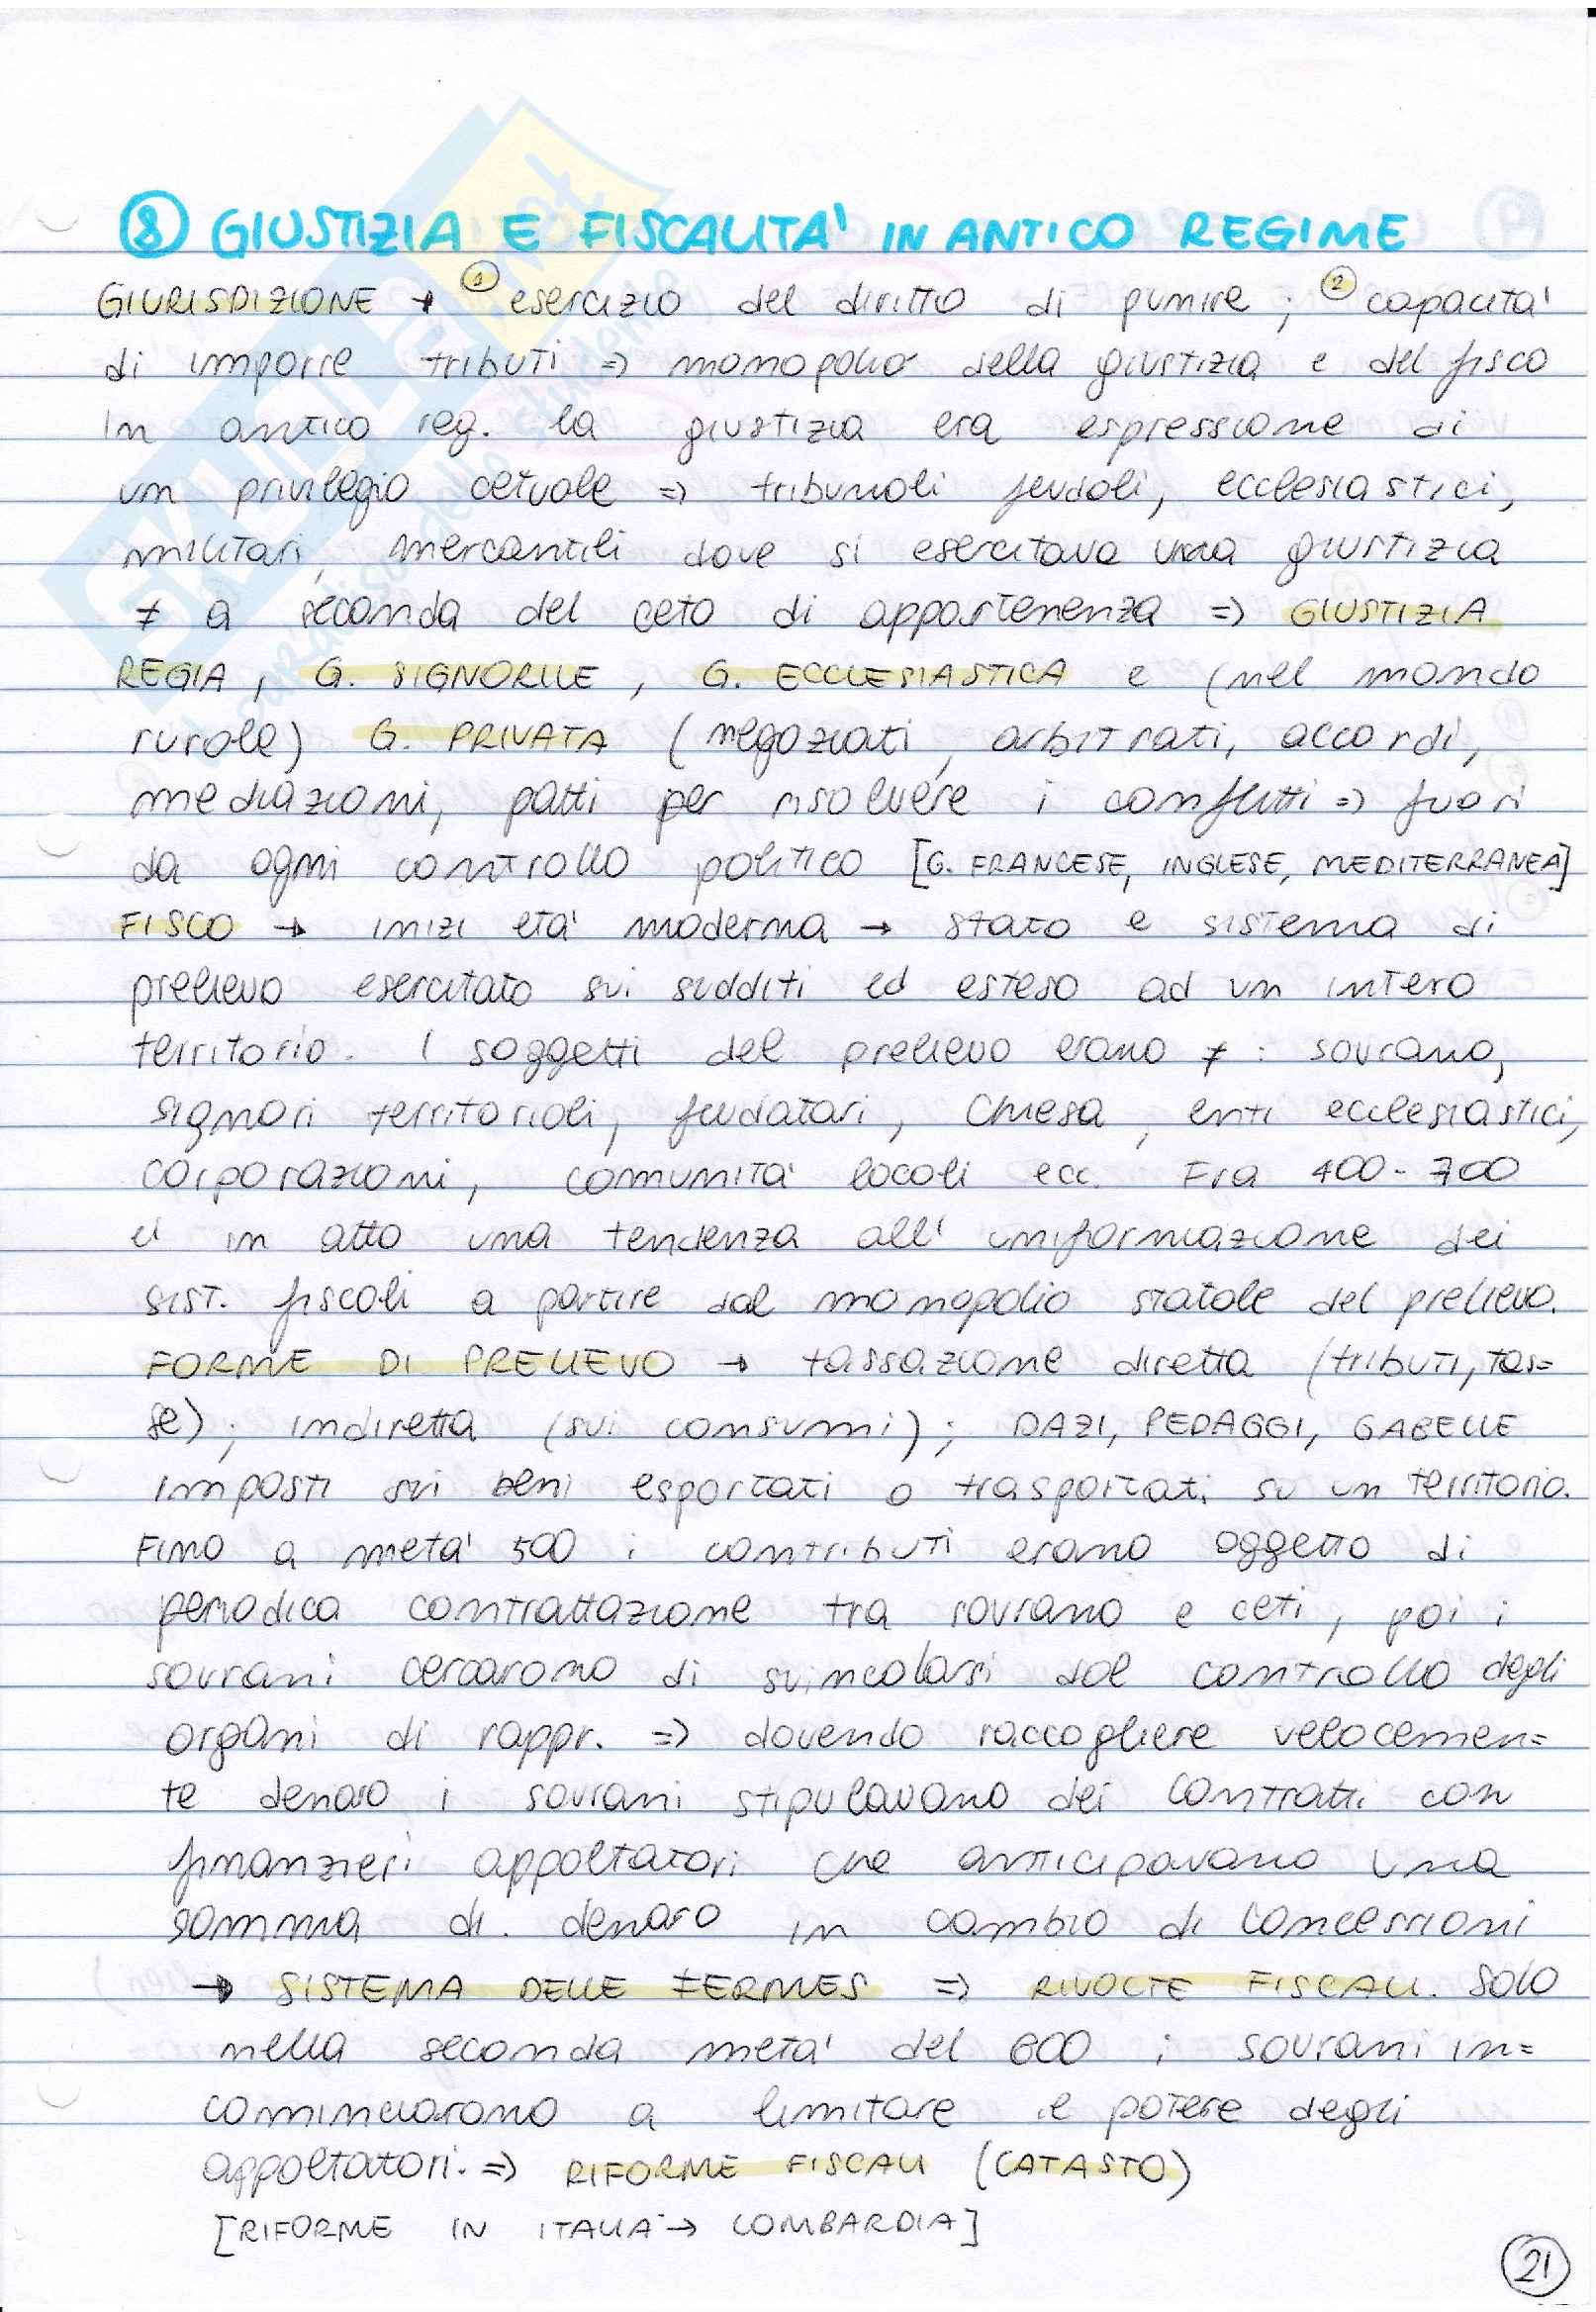 ⑧ GIUSTIZIA E FISCALITA' IN ANTICO REGIME
GIURISDIZIONE → ① esercizio del diritto di punire ; ② capacità
di imporre tributi => monopolio della giustizia e del fisco
In antico reg. la giustizia era espressione di
un privilegio cetuale => tribunali feudali, ecclesiastici,
militari, mercantili dove si esercitava una giustizia
≠ a seconda del ceto di appartenenza => GIUSTIZIA
REGIA, G. SIGNORILE, G. ECCLESIASTICA e (nel mondo
rurale) G. PRIVATA (negoziati, arbitrati, accordi,
mediazioni, patti per risolvere i conflitti => fuori
da ogni controllo politico [G. FRANCESE, INGLESE, MEDITERRANEA]
FISCO → inizi età moderna → stato e sistema di
prelievo esercitato sui sudditi ed esteso ad un intero
territorio. I soggetti del prelievo erano ≠ : sovrano,
signori territoriali, feudatari, Chiesa, enti ecclesiastici,
corporazioni, comunità locali ecc. Fra 400-700
è in atto una tendenza all'uniformazione dei
sist. fiscali a partire dal monopolio statale del prelievo.
FORME DI PRELIEVO → tassazione diretta (tributi, tas=
se) ; indiretta (sui consumi) ; DAZI, PEDAGGI, GABELLE
imposti sui beni esportati o trasportati su un territorio.
Fino a metà 500 i contributi erano oggetto di
periodica contrattazione tra sovrano e ceti, poi i
sovrani cercarono di svincolarsi dal controllo degli
organi di rappr. => dovendo raccogliere velocemen=
te denaro i sovrani stipulavano dei contratti con
finanzieri appaltatori che anticipavano una
somma di denaro in cambio di concessioni
→ SISTEMA DELLE FERMES => RIVOLTE FISCALI. Solo
nella seconda metà del 600 i sovrani in=
cominciarono a limitare il potere degli
appaltatori. => RIFORME FISCALI (CATASTO)
[RIFORME IN ITALIA → LOMBARDIA]
21